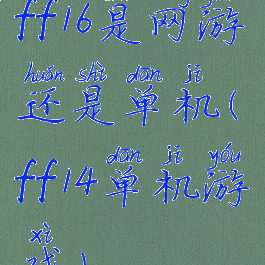 ff16是网游
huán shì dān jī
还是单机(
dān jī yóu
ff14单机游
xì
戏)